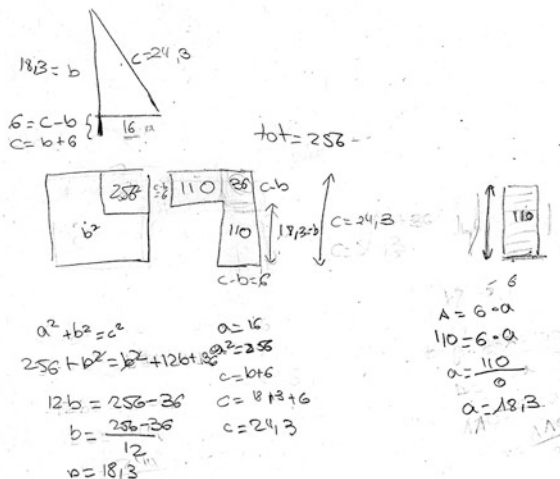 18,3 = b
c=24,3
6 = c-b
c = b+6
16
tot = 256
256
b²
c-b
6
110
36
c-b
110
18,3=b
c = 24,3
c-b=6
110
6
a² + b² = c²
256 + b² = b² + 12b + 36
12b = 256-36
b = 256-36
12
b = 18,3
a = 16
a² = 256
c = b+6
c = 18,3+6
c = 24,3
A = 6·a
110 = 6·a
a = 110
6
a = 18,3